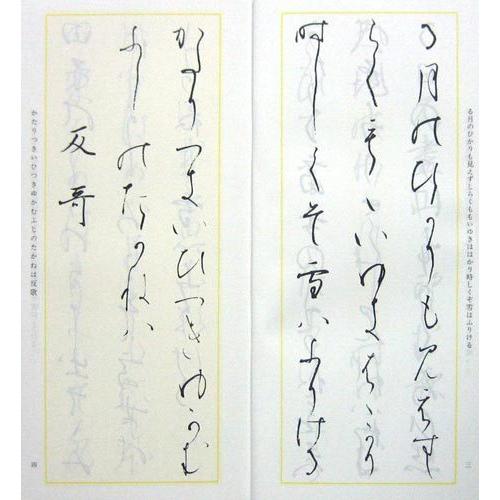 る月のひかりも見えずしらくももいゆきははかり時しくぞ雪はふりける
る月のひかりも見えす
しらくもゝいゆきはゝかり
時しくそ雪はふりける
三
かたりつきいひつきゆかむ
ふしのたかねは
反哥
かたりつきいひつきゆかむふじのたかねは反歌
四